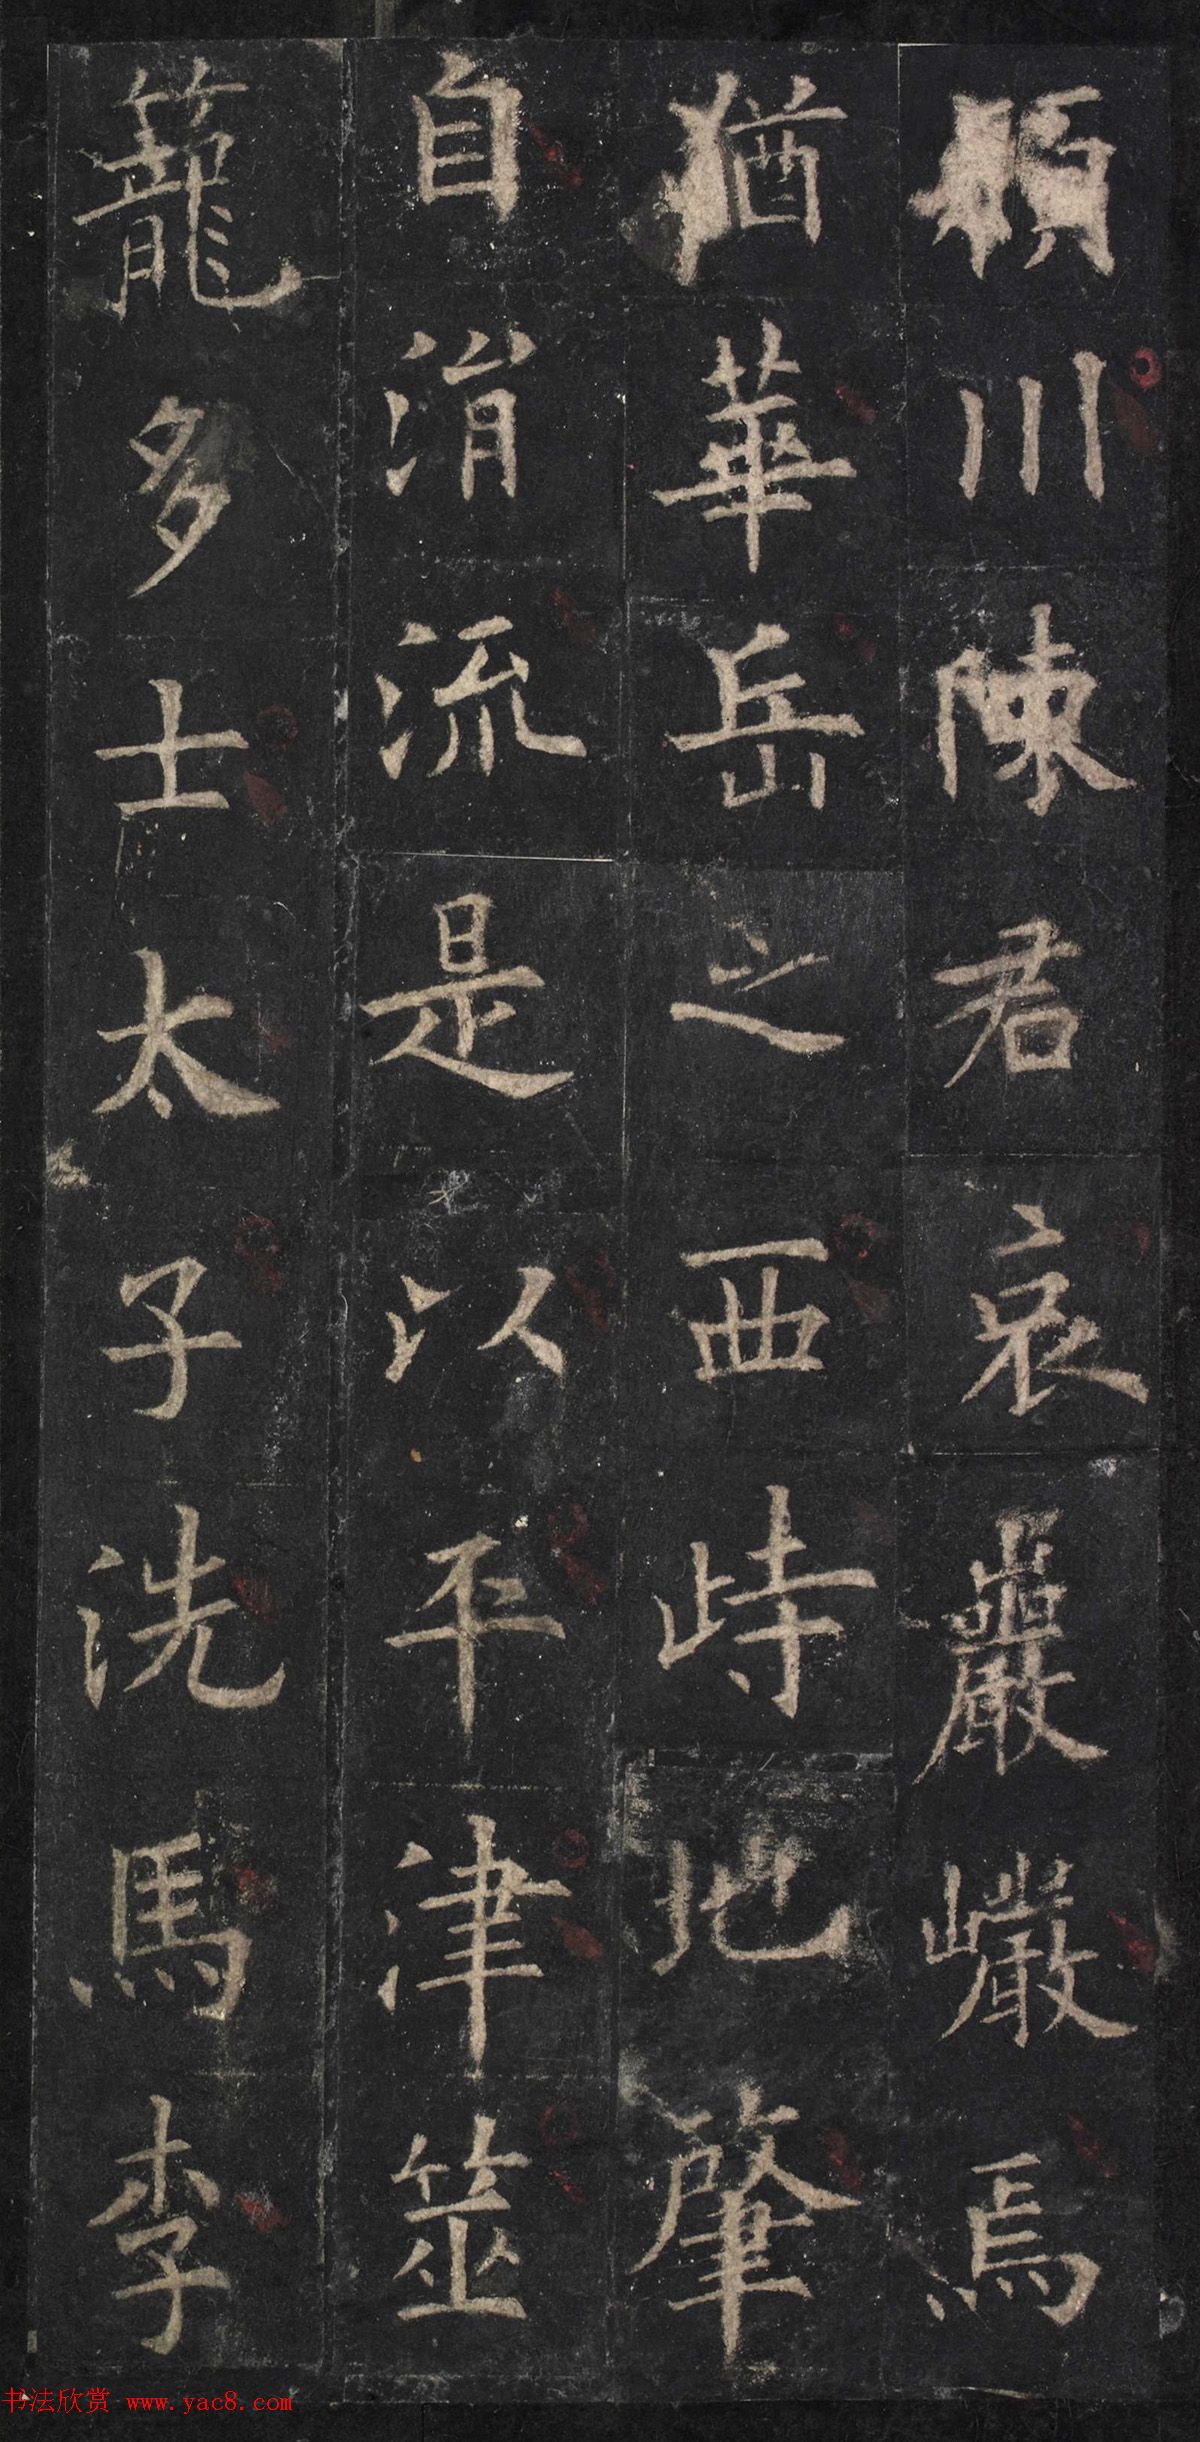 穎川陳君裒巖巘焉
猶華岳之西峙地肇
自涓流是以平津筮
龍多士太子洗馬李
书法欣赏 www.yac8.com